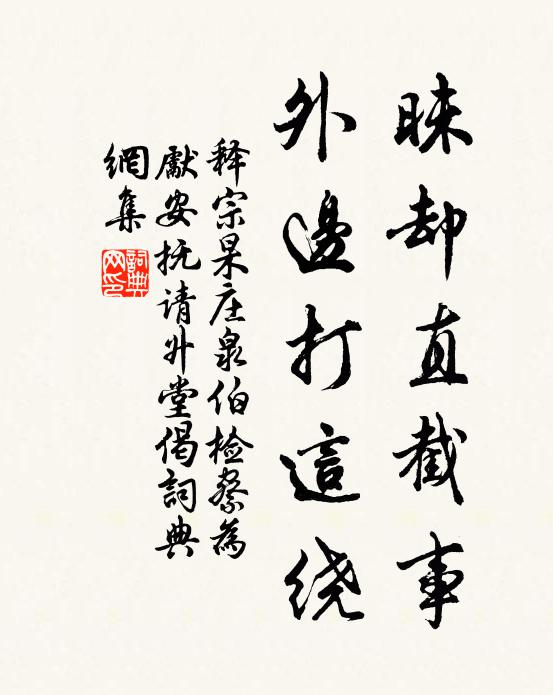 睐却直截事
外邊打這绕
释宗杲庄泉伯检察為
獻安抚请升堂偈詞典
網集
詞典网印